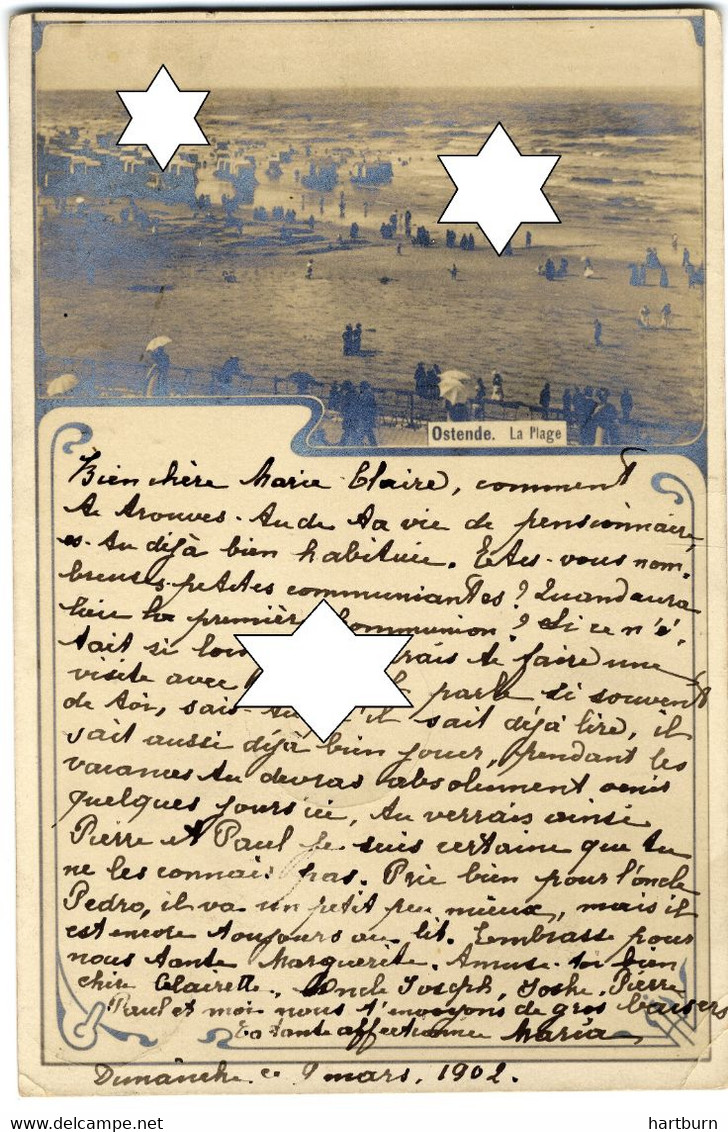 Ostende. La Plage
Bien chère Marie Claire, comment
te trouves-tu de ta vie de pensionnaire,
es-tu déjà bien habituée. Etes-vous nom-
breuses petites communiantes? Quand aura
lieu la première Communion? Si ce n'é-
tait si te faire une
visite avec parle si souvent
de toi, sais-tu qu'il sait déjà lire, il
sait aussi déjà bien jouer, pendant les
vacances tu devras absolument venir
quelques jours ici, tu verrais ainsi
Pierre et Paul je suis certaine que tu
ne les connais pas. Prie bien pour l'oncle
Pedro, il va un petit peu mieux, mais il
est encore toujours au lit. Embrasse pour
nous tante Marguerite. Amuse-toi bien
chère Clairette, Oncle Joseph, Joske, Pierre
Paul et moi nous t'envoyons de gros baisers
Ta tante affectionnée Maria
Dimanche ce 9 mars, 1902.
delcampe.net
hartburn